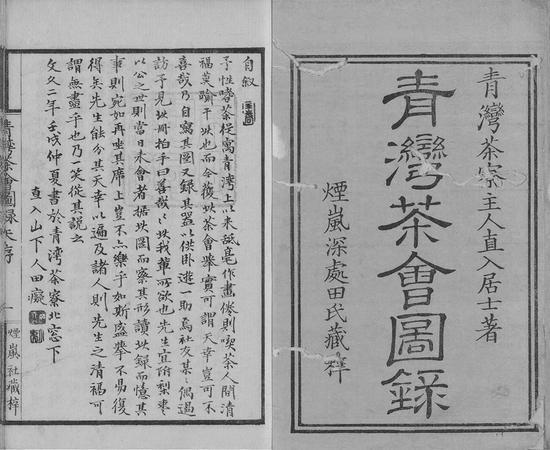 青灣茶寮主人直入居士著
青灣茶會圖録
煙嵐深處田氏藏梓
自叙
予性嗜茶從寓青灣上以来舐毫作畫倦則喫茶人間清
福莫踰于此也而今復此茶會舉實可謂天幸豈可不
喜哉乃自寫其圖又録其器以供卧遊一助焉社友某偶過
訪予見此冊拍手曰善哉此我輩所欲也先生宜付梨棗
以公之世則當日未會者據此圖而察其形讀此録而憶其
事則宛如再坐其席上豈不亦樂乎如斯盛舉不易復
得矣先生能分其天幸以遍及諸人則先生之清福可
謂無盡乎也乃一笑從其說云
文久二年壬戌仲夏書於青湾茶寮北窓下
直入山下人田癡
青灣茶會圖録
序
一
煙嵐社藏梓